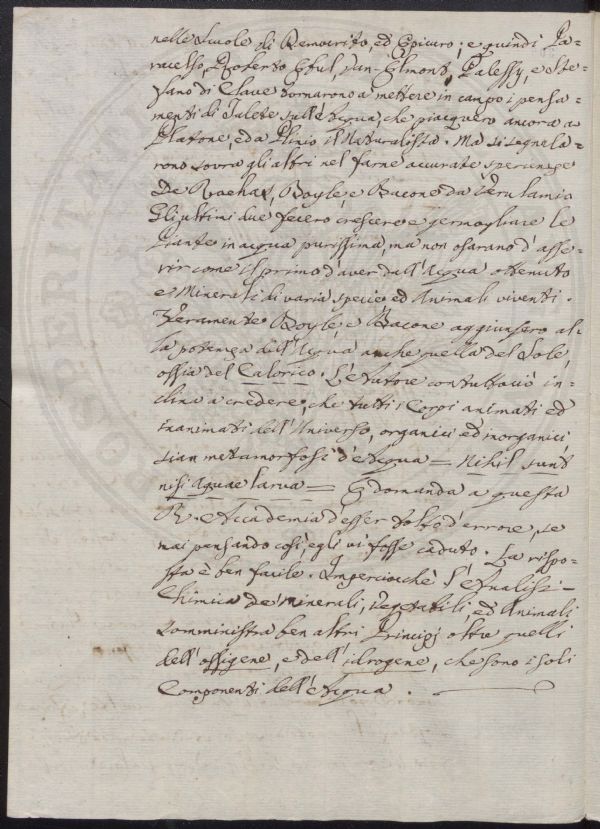 nelle Scuole di Democrito, ed Epicuro; e quindi Pa-
racelso, Roberto Flud, Van-Elmont, Palessy, e Ste-
fano di Clave tornarono a mettere in campo i pensa-
menti di Talete sull'Acqua, che piacquero ancora a
Platone, ed a Plinio il Naturalista. Ma si segnala-
rono sovra gli altri nel farne accurate sperienze
De Rochas, Boyle e Bacone da Verulamio
Gli ultimi due fecero crescere e germogliare le
Piante in acqua purissima, ma non osarano d'asse-
rir come il primo d'aver dall'Acqua ottenuto
e Minerali di varia specie ed Animali viventi.
Veramente Boyle e Bacone aggiunsero al-
la potenza dell'Acqua anche quella del Sole,
ossia del Calorico. L'Autore con tuttociò in-
clina a credere, che tutti i Corpi animati ed
inanimati dell'Universo, organici ed inorganici
sian metamorfosi d'Acqua = Nihil sunt
nisi Aquae larva = E domanda a questa
R. Accademia d'esser tolto d'errore, se
mai pensando così, egli vi fosse caduto. La rispo-
sta è ben facile. Imperciocchè l'Analisi-
Chimica de' minerali, Vegetabili, ed Animali
somministra ben altri Principj oltre quelli
dell'ossigene, e dell'idrogene, che sono i soli
Componenti dell'Acqua.